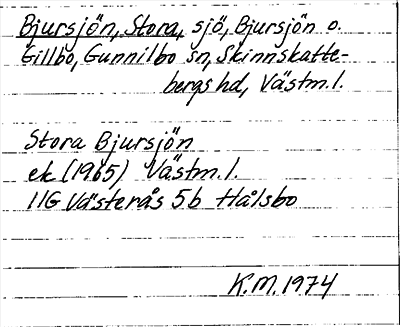 Bjursjön, Stora, sjö, Bjursjön o.
Gillbo, Gunnilbo sn, Skinnskatte-
bergs hd, Västm.l.
Stora Bjursjön
ek (1965) Västm.l.
11G Västerås 5b Hålsbo
K.M. 1974